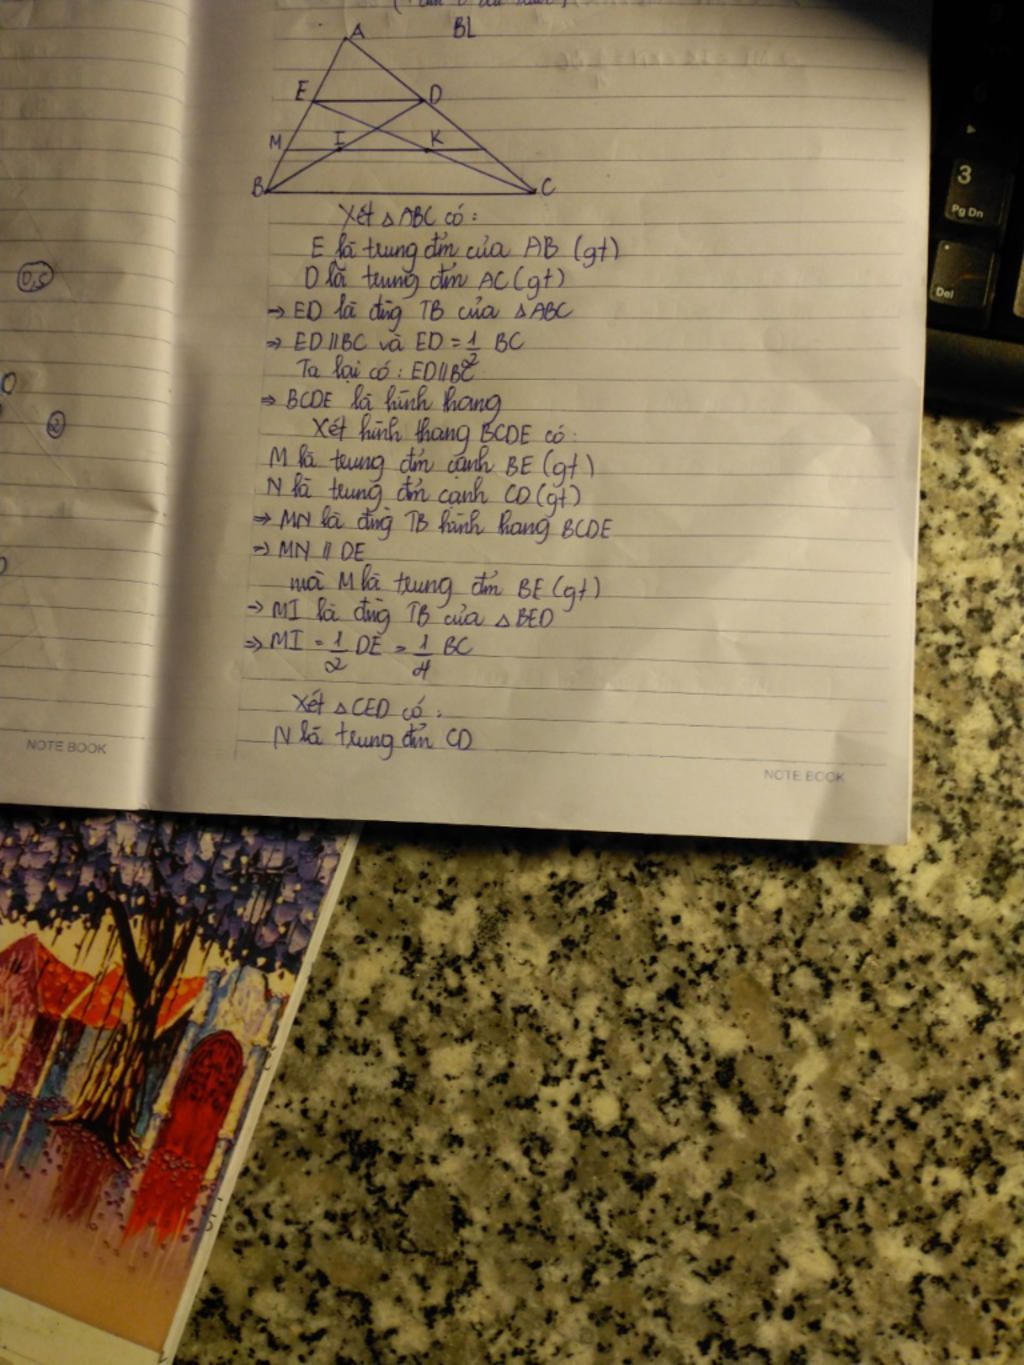 BL
A
E D
M I K
B C
Xét △ABC có :
E là trung đ'm của AB (gt)
D là trung đ'm AC (gt)
→ ED là đ'ng TB của △ABC
⇒ ED // BC và ED = 1/2 BC
Ta lại có : ED // BC
⇒ BCDE là hình hang
Xét hình thang BCDE có :
M là trung đ'm cạnh BE (gt)
N là trung đ'm cạnh CD (gt)
⇒ MN là đ'ng TB hình hang BCDE
→ MN // DE
mà M là trung đ'm BE (gt)
→ MI là đ'ng TB của △BED
⇒ MI = 1/2 DE = 1/4 BC
Xét △CED có :
N là trung đ'm CD
NOTE BOOK
NOTE BOOK
0,5
2
3
Pg Dn
Del